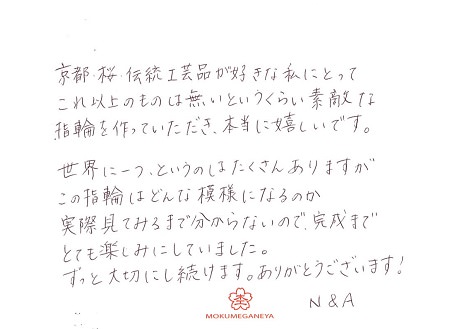 京都・桜・伝統工芸品が好きな私にとって
これ以上のものは無いというくらい素敵な
指輪を作っていただき、本当に嬉しいです。
世界に一つ、というのはたくさんありますが
この指輪はどんな模様になるのか
実際見てみるまで分からないので、完成まで
とても楽しみにしていました。
ずっと大切にし続けます。ありがとうございます!
N & A
MOKUMEGANEYA